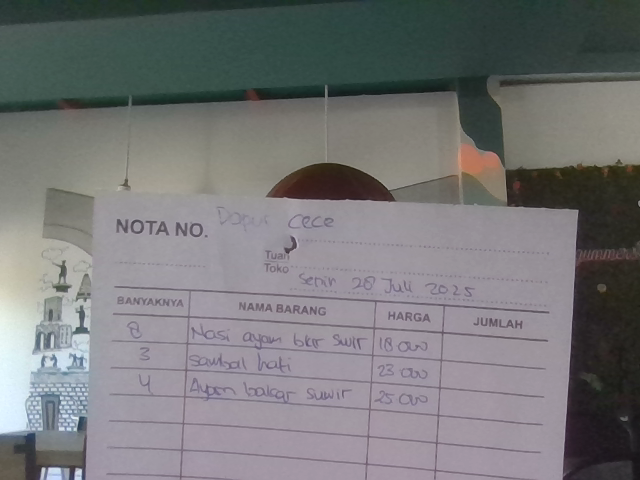 NOTA NO. Dapur cece
Tuan
Toko
Senin 28 Juli 2025
BANYAKNYA NAMA BARANG HARGA JUMLAH
8 Nasi ayam bkr swir 18 000
3 sambal hati 23 000
4 Ayam bakar suwir 25 000